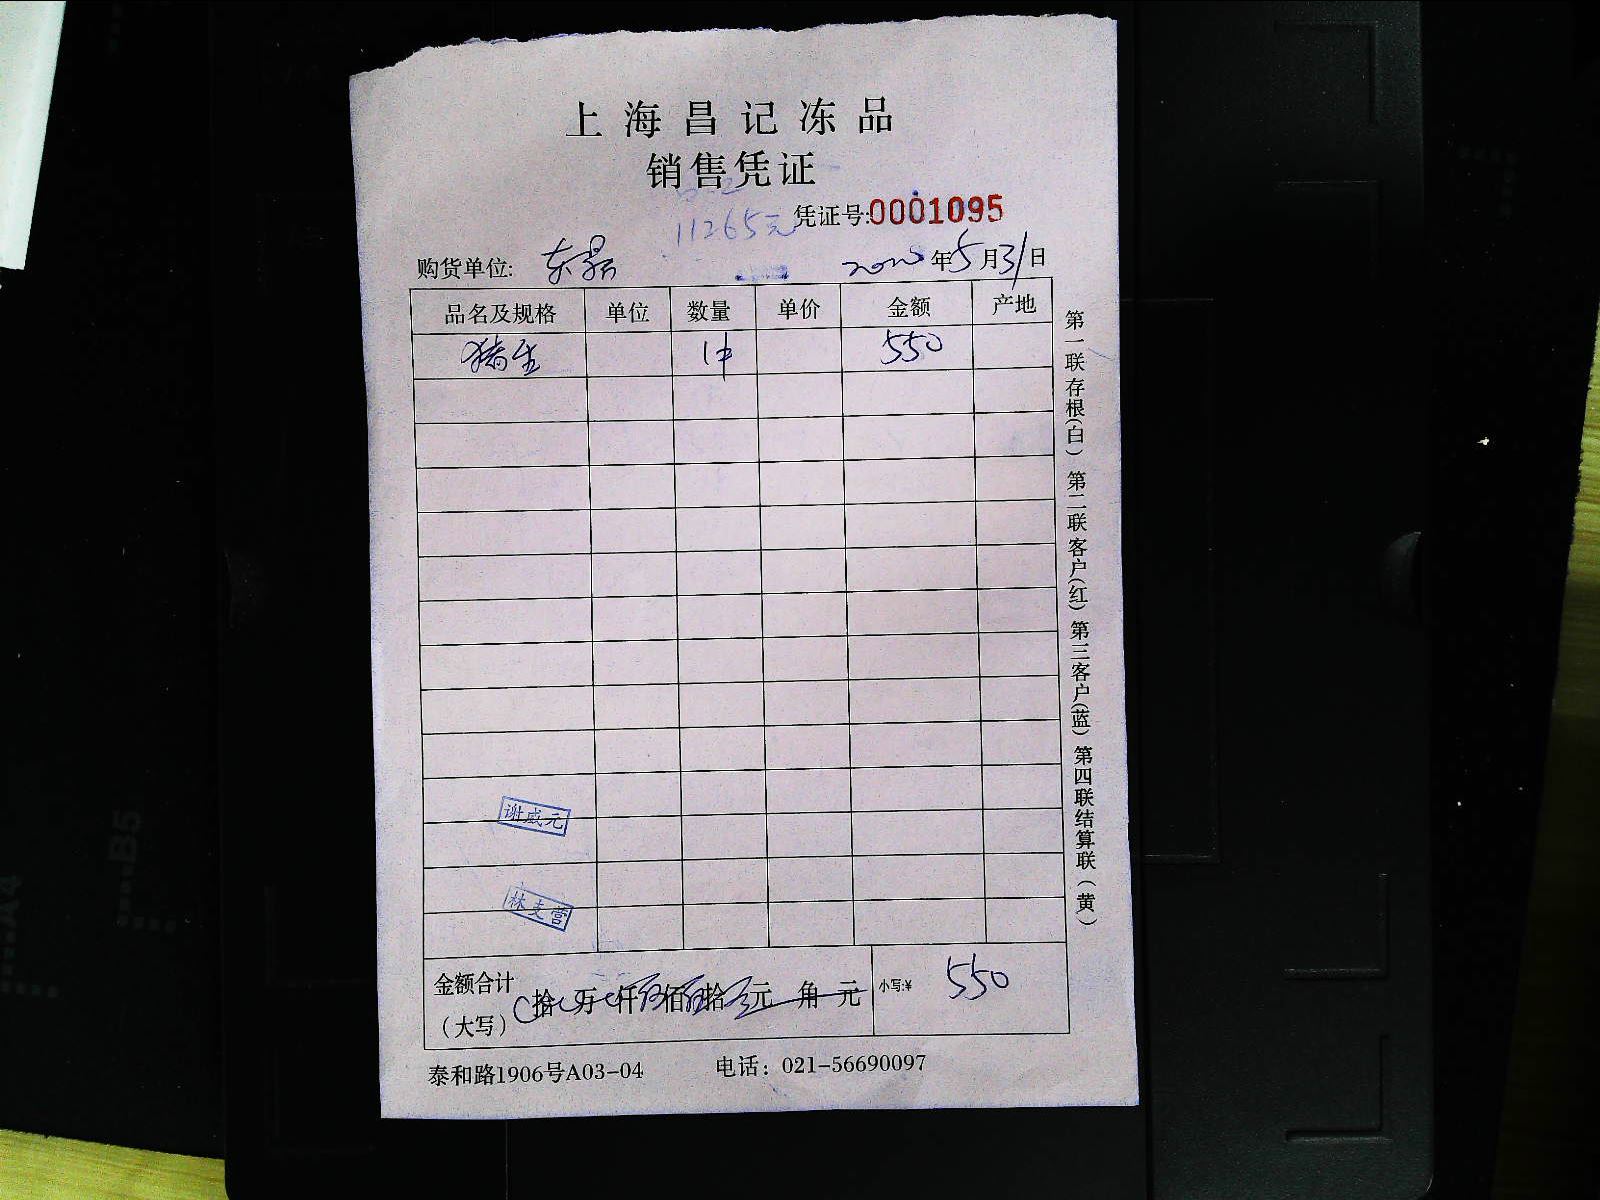 上海昌记冻品
销售凭证
11265元
凭证号:0001095
购货单位: 东晶 年5月31日
品名及规格 单位 数量 单价 金额 产地
1件 550
谢威元
林支营
金额合计
(大写) 拾 万 仟 伍佰 伍拾 元 角 元 小写:¥ 550
泰和路1906号A03-04 电话: 021-56690097
第一联存根(白) 第二联客户(红) 第三客户(蓝) 第四联结算联(黄)
A4
B5